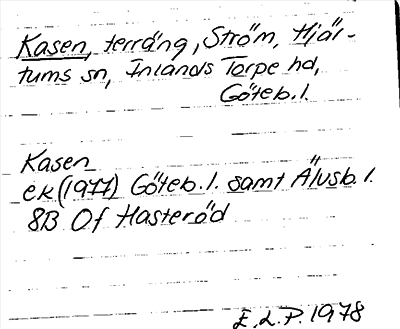 Kasen, terräng, Ström, Hjär-
tums sn, Inlands Torpe hd,
Göteb. l.
Kasen
ek (1977) Göteb. l. samt Älvsb. l.
8B Of Hasteröd
E.L.P. 1978